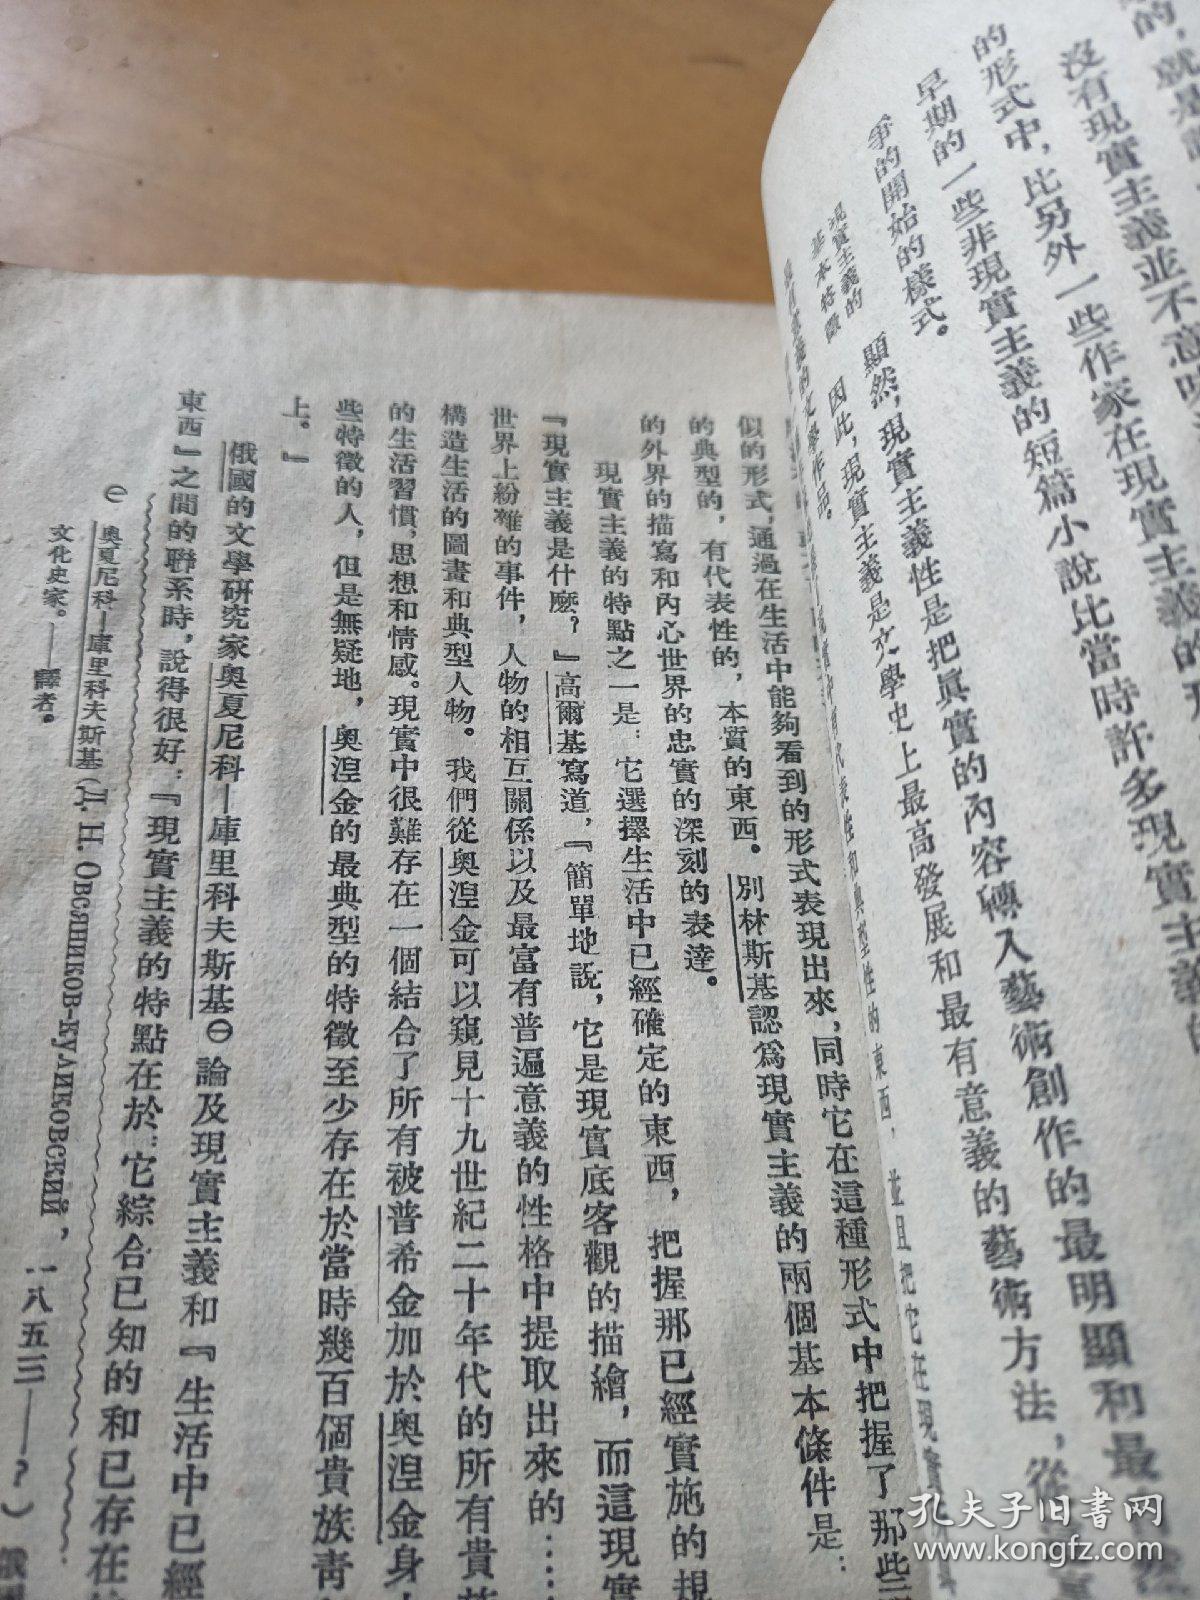 的，就是說
沒有現實主義並不意味
的形式中，比另外一些作家在現實主義的形
早期的一些非現實主義的短篇小說比當時許多現實主義的
爭的開始的樣式。
顯然，現實主義性是把眞實的內容轉入藝術創作的最明顯和最
現實主義的
基本特徵
因此，現實主義是文學史上最高發展和最有意義的藝術方法，從
的文學作品。
似的形式，通過在生活中能夠看到的形式表現出來，同時它在這種形式中把握了那些
的典型的，有代表性的，本質的東西。別林斯基認爲現實主義的兩個基本條件是：
的外界的描寫和內心世界的忠實的深刻的表達。
現實主義的特點之一是：它選擇生活中已經確定的東西，把握那已經實施的規
『現實主義是什麼？』高爾基寫道，『簡單地説，它是現實底客觀的描繪，而這現實
世界上紛雜的事件，人物的相互關係以及最富有普遍意義的性格中提取出來的……
構造生活的圖畫和典型人物。我們從奧湼金可以窺見十九世紀二十年代的所有貴族
的生活習慣，思想和情感。現實中很難存在一個結合了所有被普希金加於奧湼金身上
些特徵的人，但是無疑地，奧湼金的最典型的特徵至少存在於當時幾百個貴族靑
上。』
俄國的文學研究家奧夏尼科—庫里科夫斯基㊀論及現實主義和『生活中已經
東西』之間的聯系時，說得很好：『現實主義的特點在於：它綜合已知的和已存在
㊀ 奧夏尼科—庫里科夫斯基(Д. Н. Овсянников-Куликовский, 一八五三——?) 俄
文化史家。——譯者。
孔夫子旧书网
www.kongfz.com